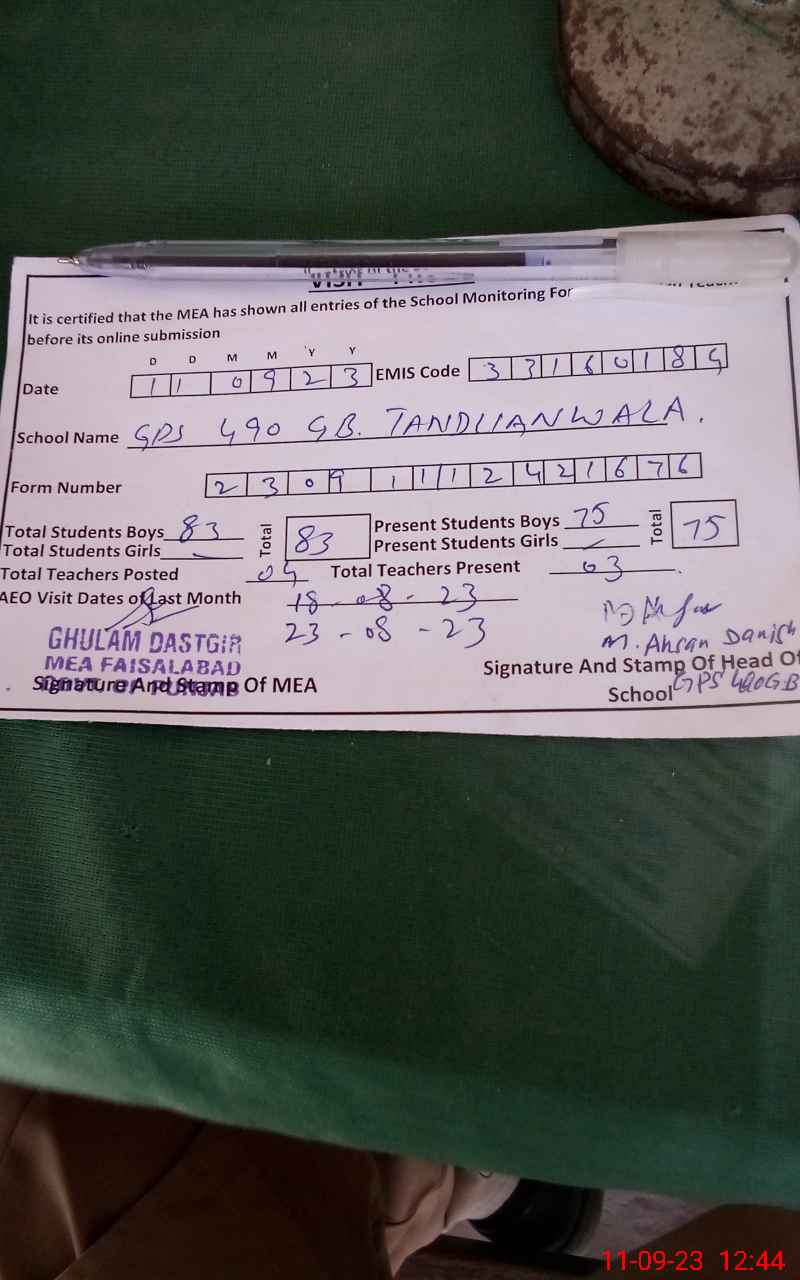 It is certified that the MEA has shown all entries of the School Monitoring For
before its online submission
D D M M Y Y
Date 1 1 0 9 2 3 EMIS Code 3 3 1 6 0 1 8 4
School Name GPS 490 GB. TANDLIANWALA.
Form Number 2 3 0 9 1 1 1 2 4 2 1 6 7 6
Total Students Boys 83 Total 83 Present Students Boys 75 Total 75
Total Students Girls Present Students Girls
Total Teachers Posted 04 Total Teachers Present 03
AEO Visit Dates of Last Month 18-08-23
23-08-23
GHULAM DASTGIR
MEA FAISALABAD
GOVT. OF PUNJAB
Signature And Stamp Of MEA
M. Ahsan Danish
Signature And Stamp Of Head Of
School GPS 490GB
11-09-23 12:44